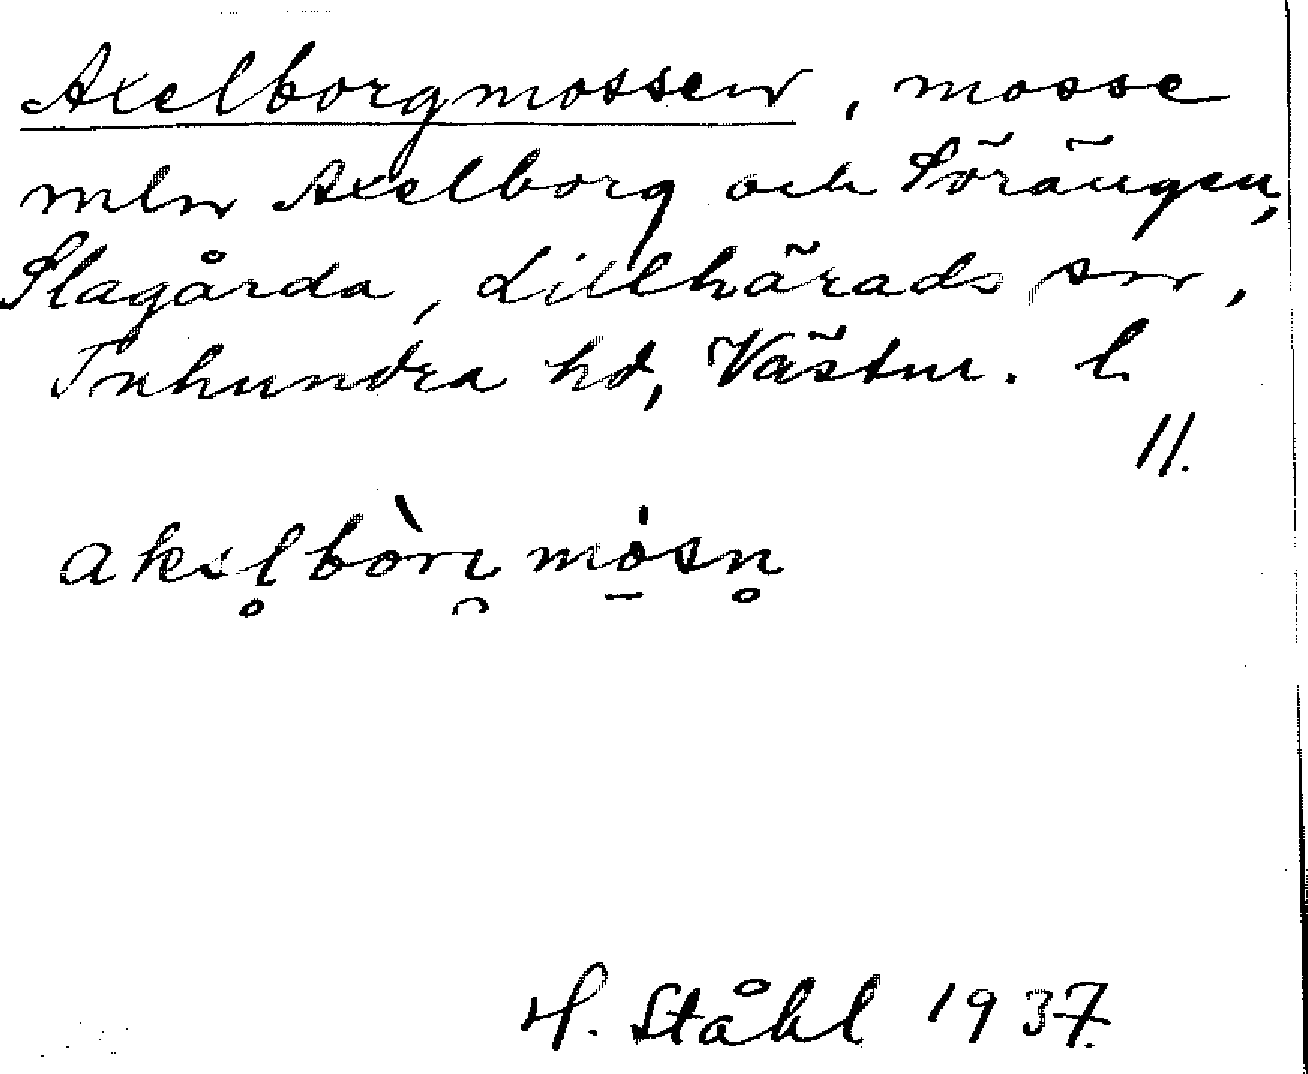 Axelborgmossen, mosse
mln Axelborg och Sörängen,
Slagårda, Lillhärads sn,
Tuhundra hd, Västm. l.
11.
akslbòrj mósn
H. Ståhl 1937.